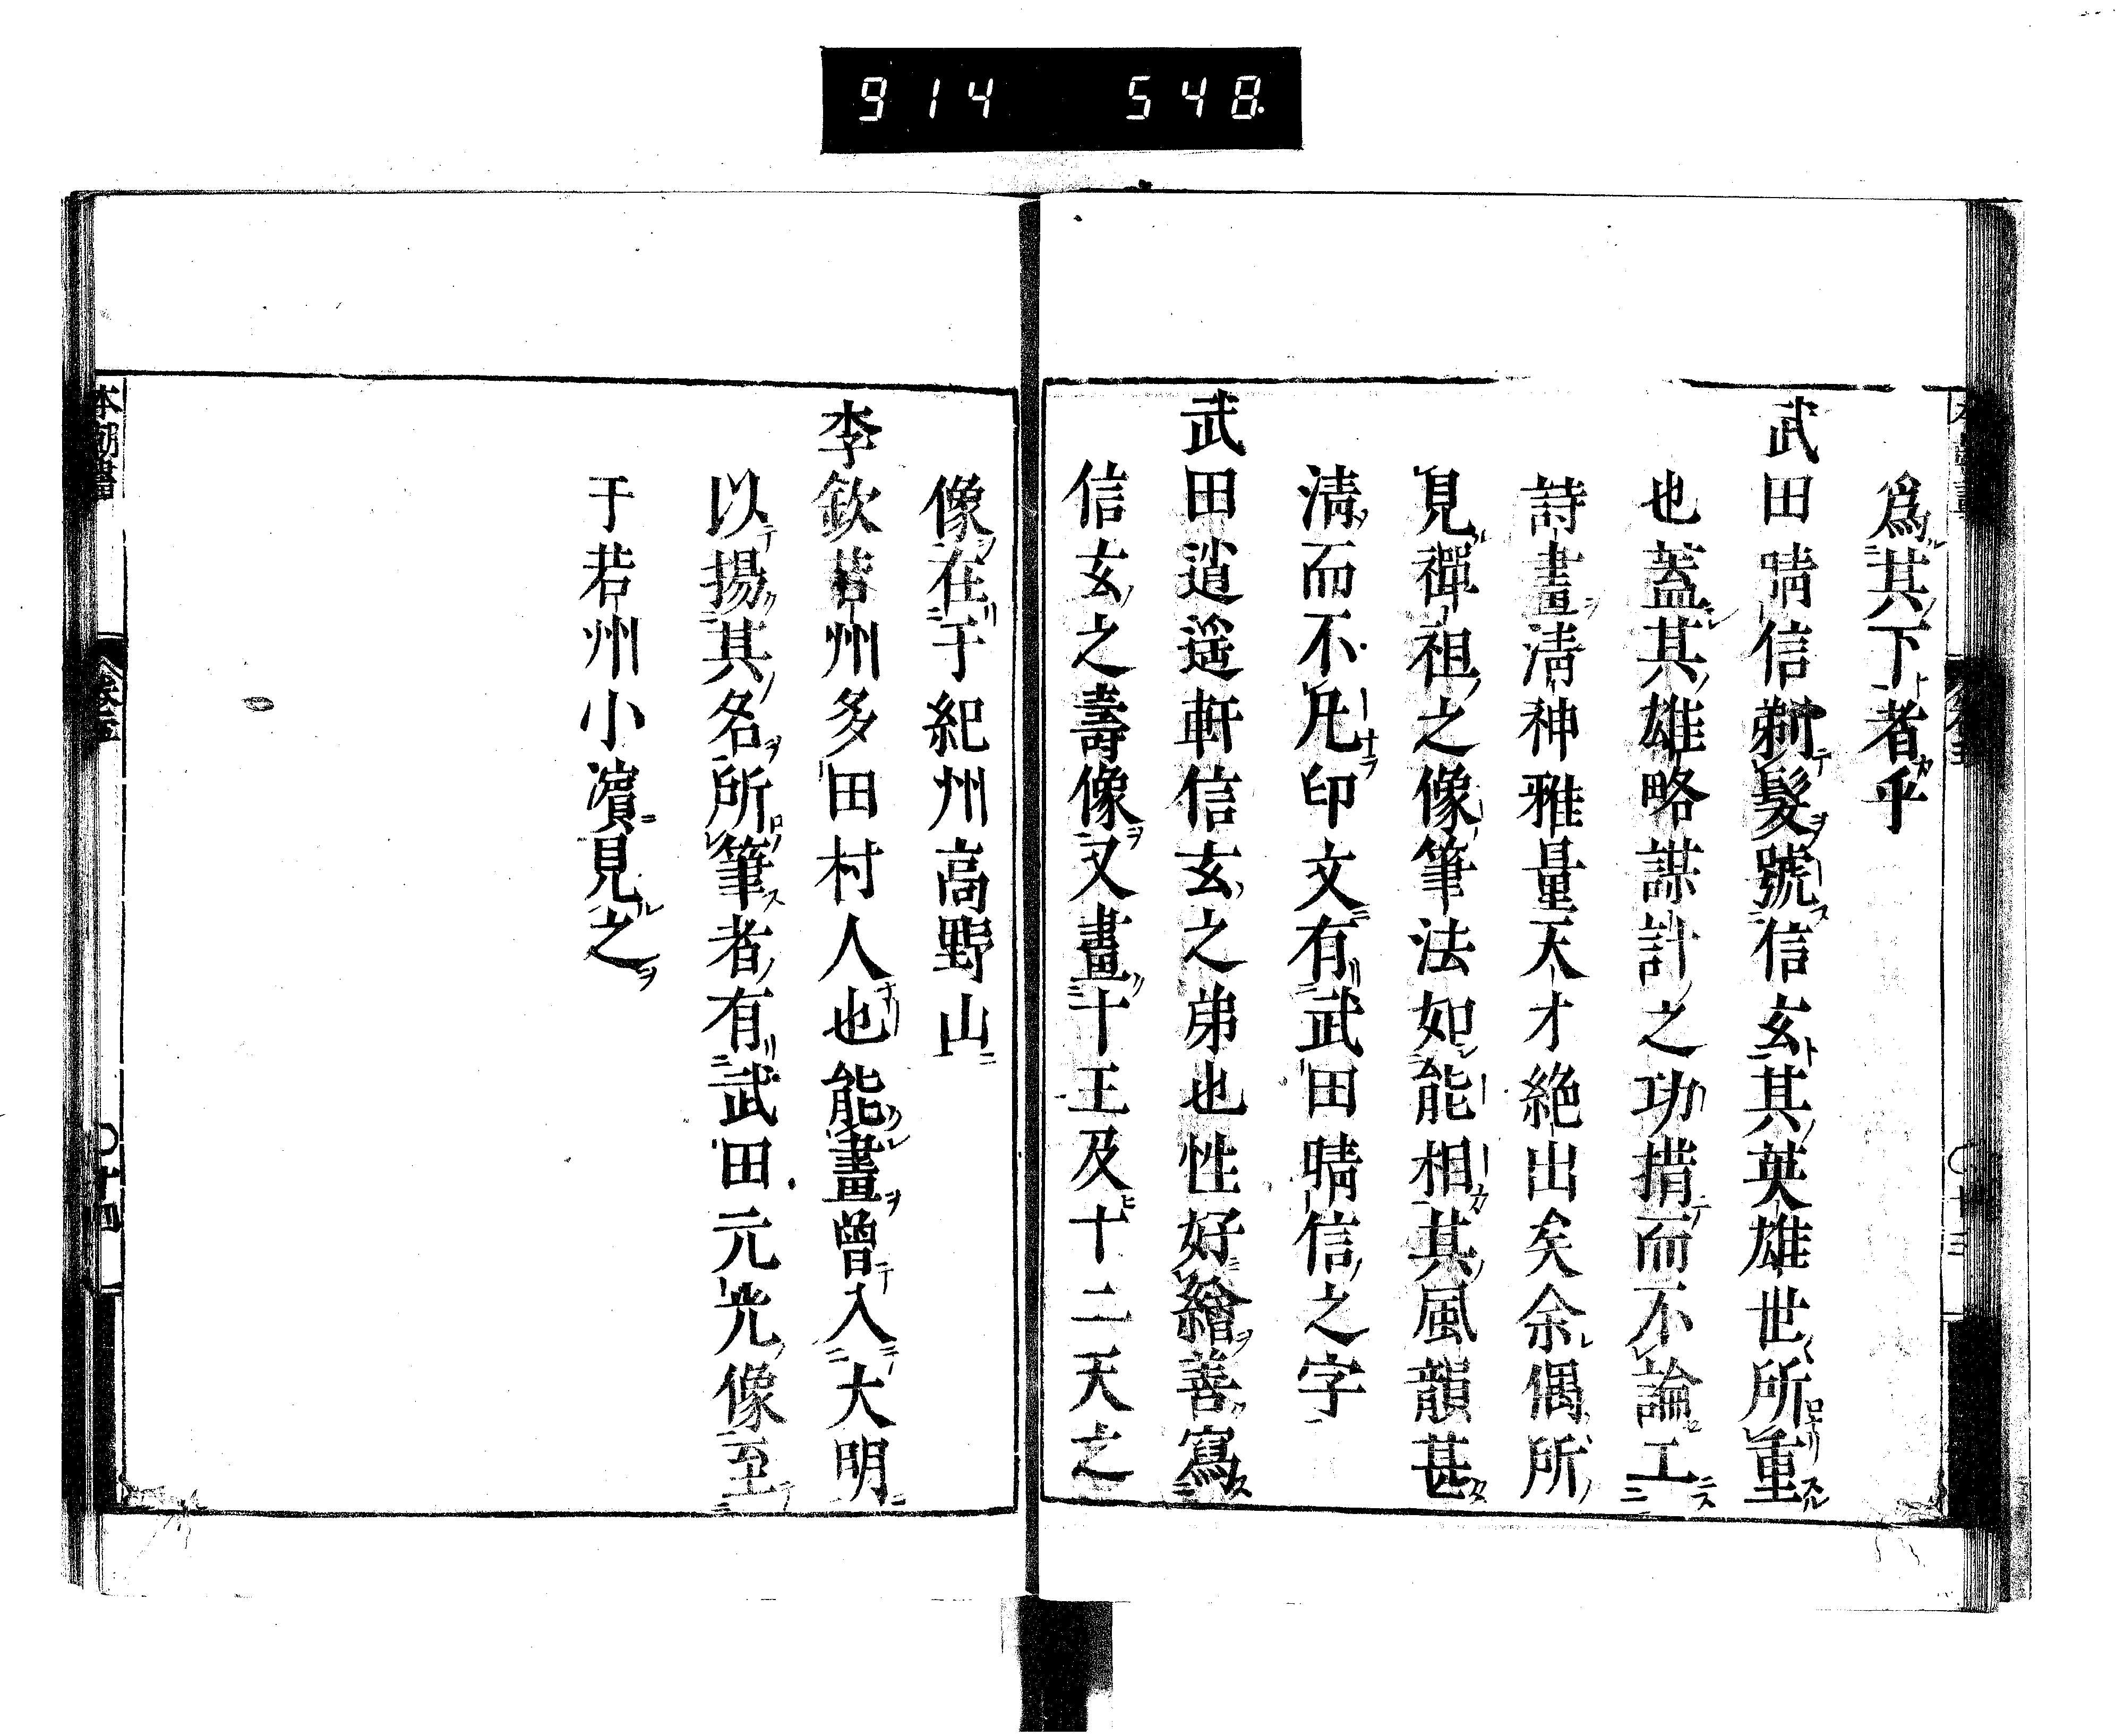 914 548
爲其下者乎
武田晴信剃髮號信玄其英雄世所重
也蓋其雄略謀計之功措而不論工
詩畫清神雅量天才絶出矣余偶所
見禪祖之像筆法如能相其風韻甚
清而不凡印文有武田晴信之字
武田逍遥軒信玄之弟也性好繪善寫
信玄之壽像又畫十王及十二天之
像在于紀州高野山
李欽若州多田村人也能畫曾入大明
以揚其名所筆者有武田元光像至
于若州小濵見之
本朝畫
卷三
十四